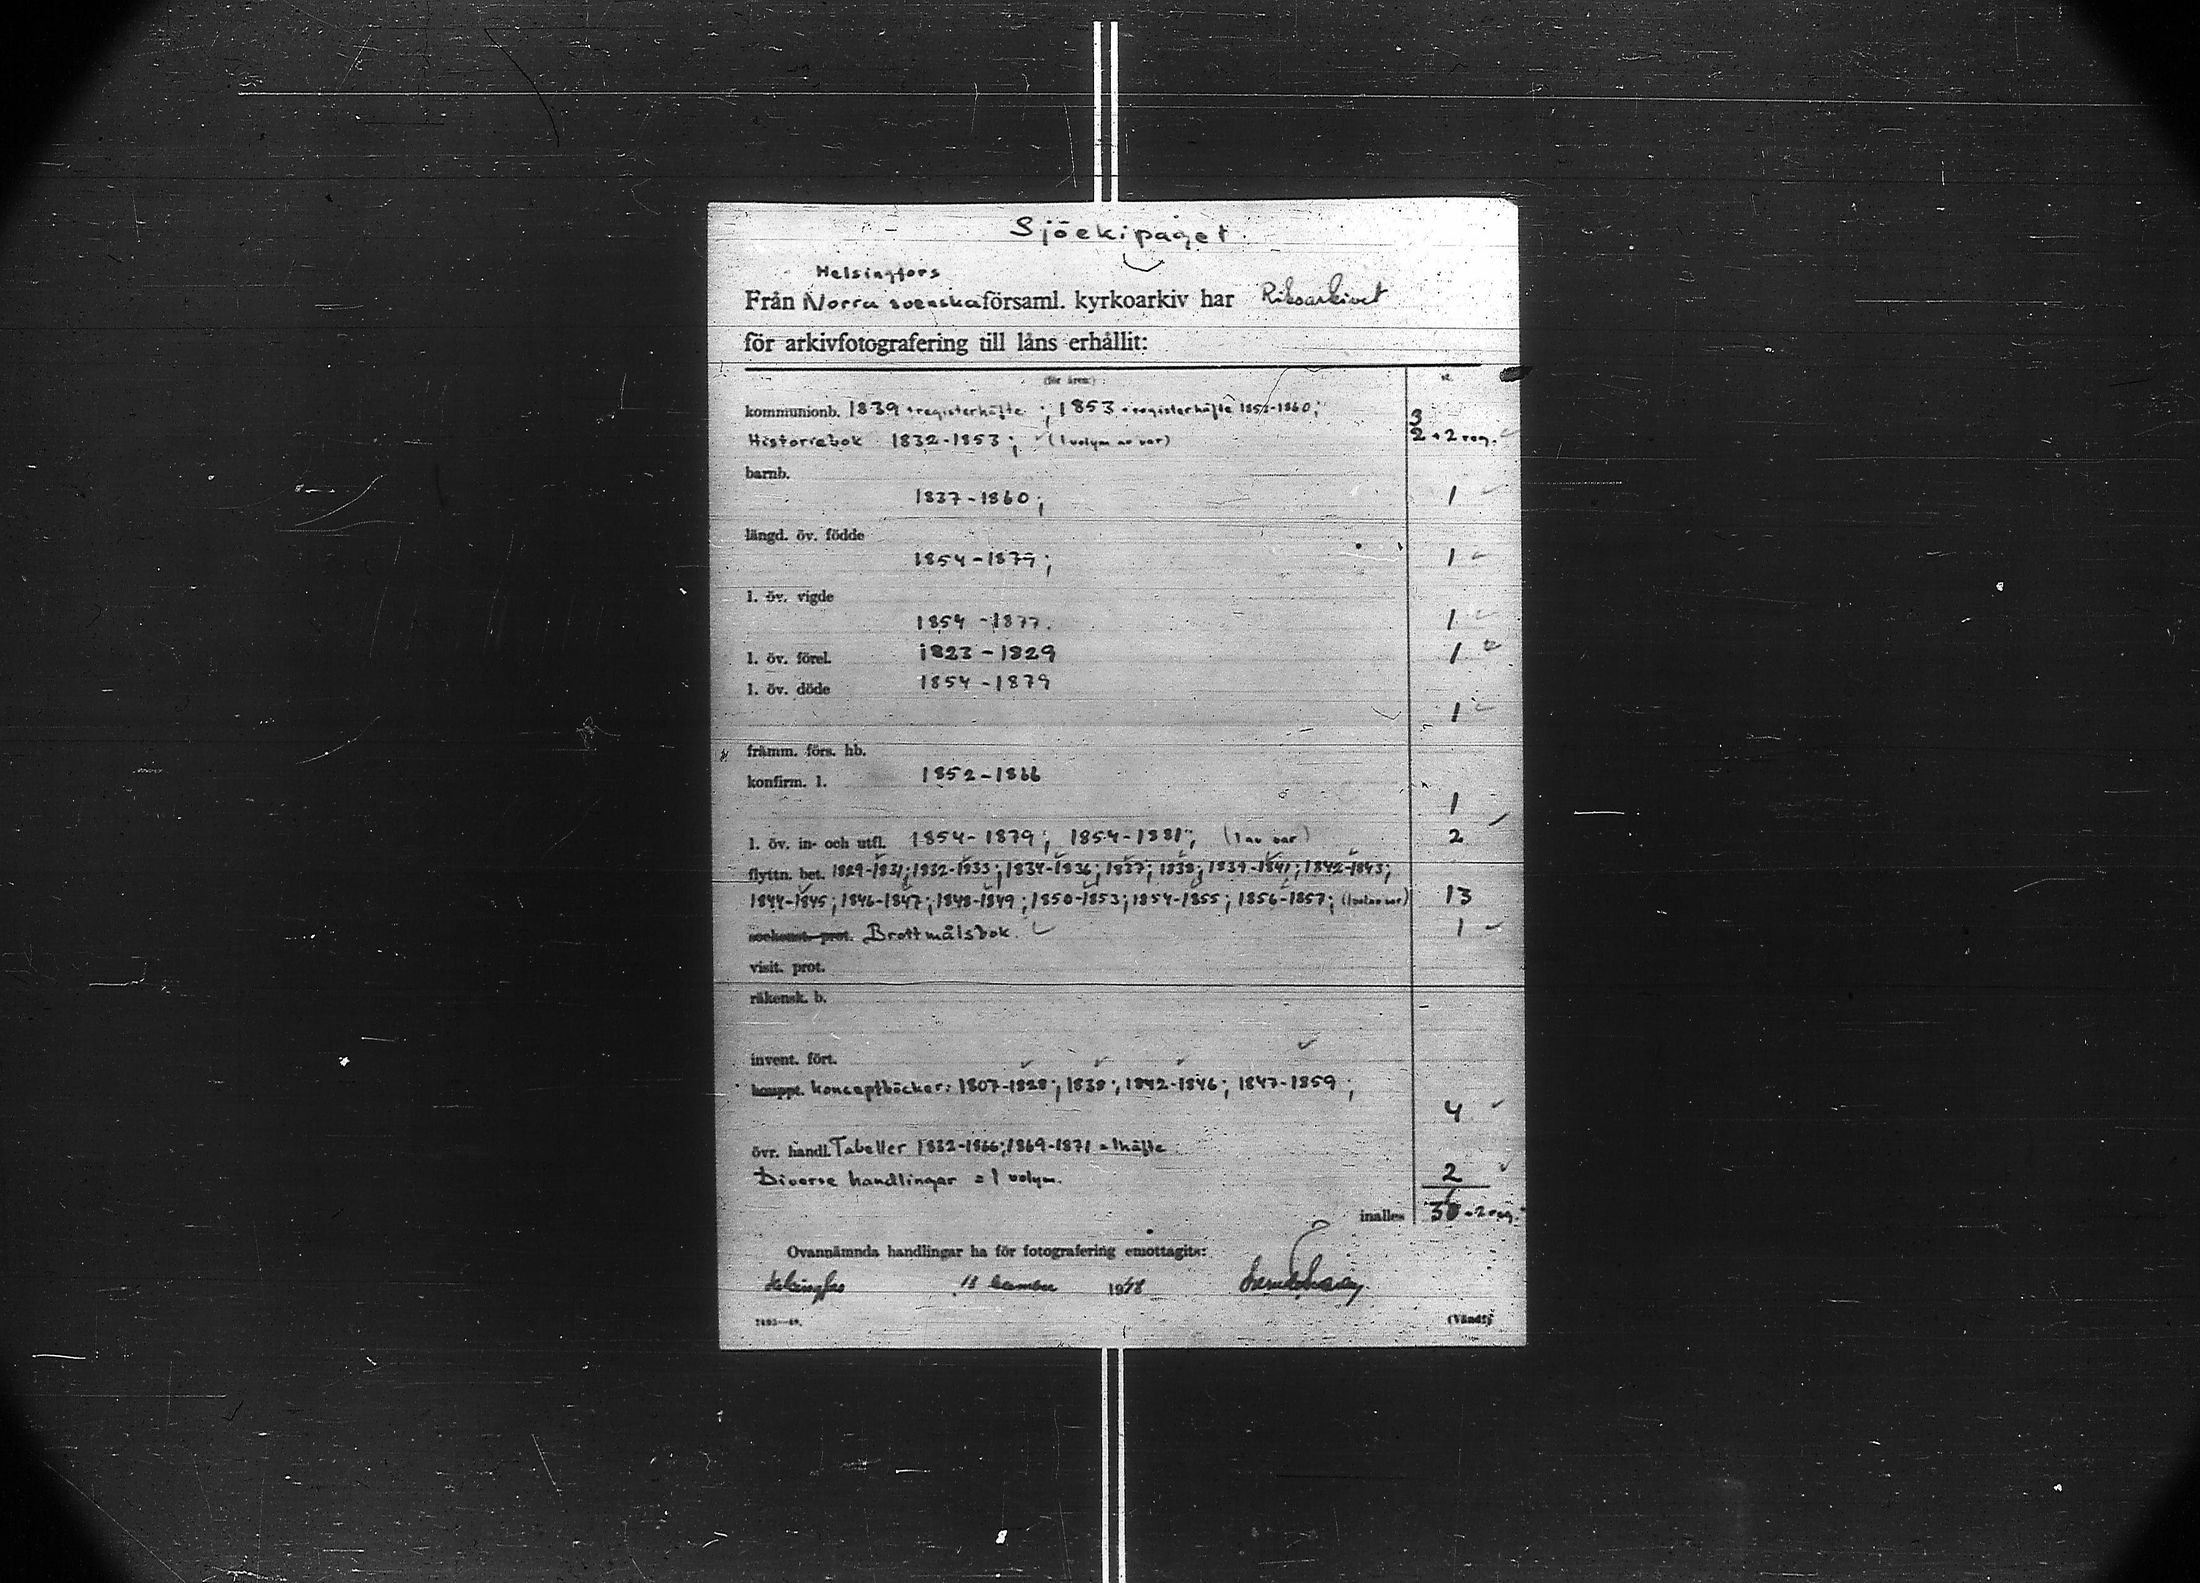 Sjöekipaget
Helsingfors
Från Norra svenska församl. kyrkoarkiv har Riksarkivet
för arkivfotografering till låns erhållit:
(för åren:) st.
kommunionb. 1839 + registerhäfte ; 1853 + registerhäfte 1853-1860; 3
Historiebok 1832-1853; (1 volym av var) 2 + 2 reg.
barnb.
1837-1860; 1
längd. öv. födde
1854-1879; 1
l. öv. vigde
1854-1877. 1
l. öv. förel. 1823-1829 1
l. öv. döde 1854-1879
1
främm. förs. hb.
konfirm. l. 1852-1866
1
l. öv. in- och utfl. 1854-1879; 1854-1881; (1 av var) 2
flyttn. bet. 1829-1831; 1832-1833; 1834-1836; 1837; 1838; 1839-1841; 1842-1843;
1844-1845; 1846-1847; 1848-1849; 1850-1853; 1854-1855; 1856-1857; (1 vol av var) 13
sockenst. prot. Brottmålsbok 1
visit. prot.
räkensk. b.
invent. fört.
konceptböcker: 1807-1828; 1838; 1842-1846; 1847-1859;
4
övr. handl. Tabeller 1832-1866; 1869-1871 = 1 häfte
Diverse handlingar = 1 volym. 2
inalles + 2 reg.
Ovannämnda handlingar ha för fotografering emottagits:
Helsingfors 1948
(Vänd!)